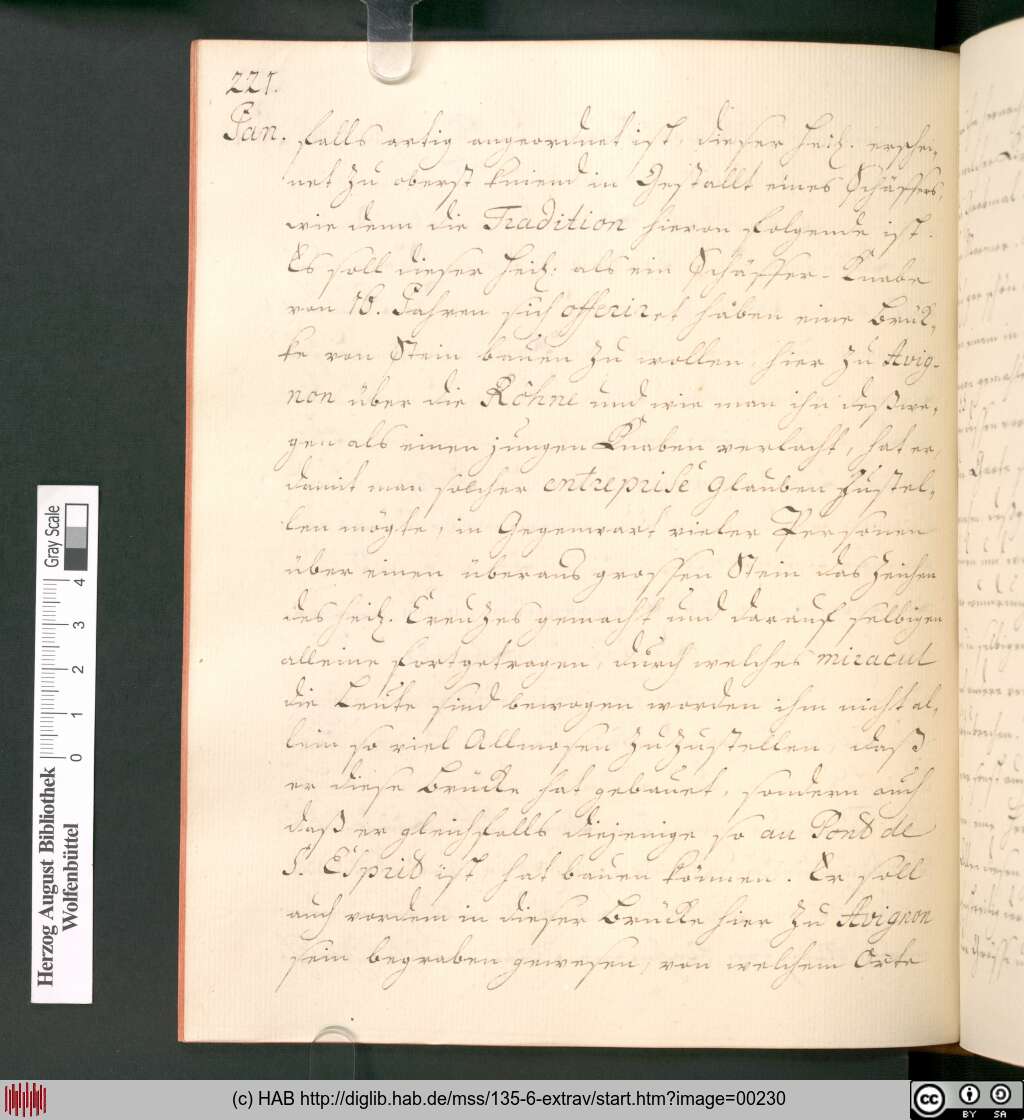 221.
Jan. falls artig angeordnet ist, dieser heil. erschei,
net zu oberst kniend in Gestallt eines Schäffers,
wie denn die Tradition hievon folgende ist.
Es soll dieser heil: als ein Schäffer-Knabe
von 18. Jahren sich offeriret haben eine Brük,
ke von Stein bauen zu wollen, hier zu Avig-
non über die Rôhne und wie man ihn deßwe,
gen als einen jungen Knaben verlacht, hat er,
damit man solcher entreprise Glauben zustel,
len mögte, in Gegenwart vieler Personen
über einen überaus grossen Stein das Zeichen
des heil. Creuzes gemacht und darauf selbigen
alleine fortgetragen, durch welches miracul
die Leute sind bewogen worden ihm nicht al,
lein so viel Allmosen zuzustellen, daß
er diese Brücke hat gebauet, sondern auch
daß er gleichfalls diejenige so au Pond de
S. Esprid ist, hat bauen können. Er soll
auch vordem in dieser Brücke hier zu Avignon
sein begraben gewesen, von welchem Orte
Herzog August Bibliothek
Wolfenbüttel
Gray Scale
0 1 2 3 4
(c) HAB http://diglib.hab.de/mss/135-6-extrav/start.htm?image=00230
cc BY SA